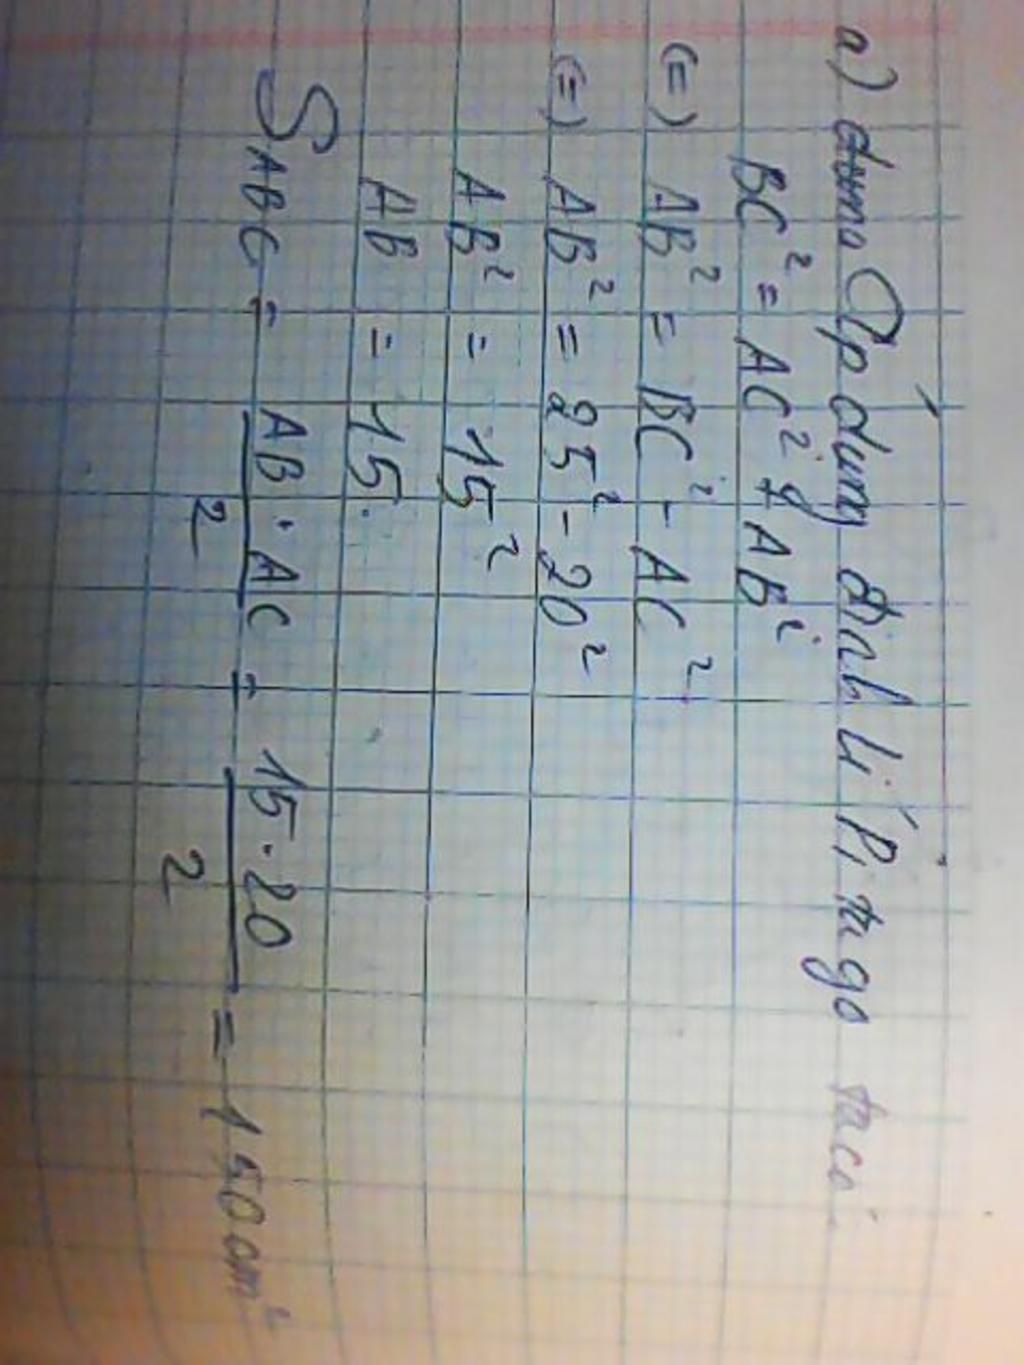 a) Áp dụng định lí Pi ta go ta có
BC² = AC² + AB²
(=) AB² = BC² - AC²
(=) AB² = 25² - 20²
AB² = 15²
AB = 15.
S ABC = AB . AC / 2 = 15 . 20 / 2 = 150 cm²